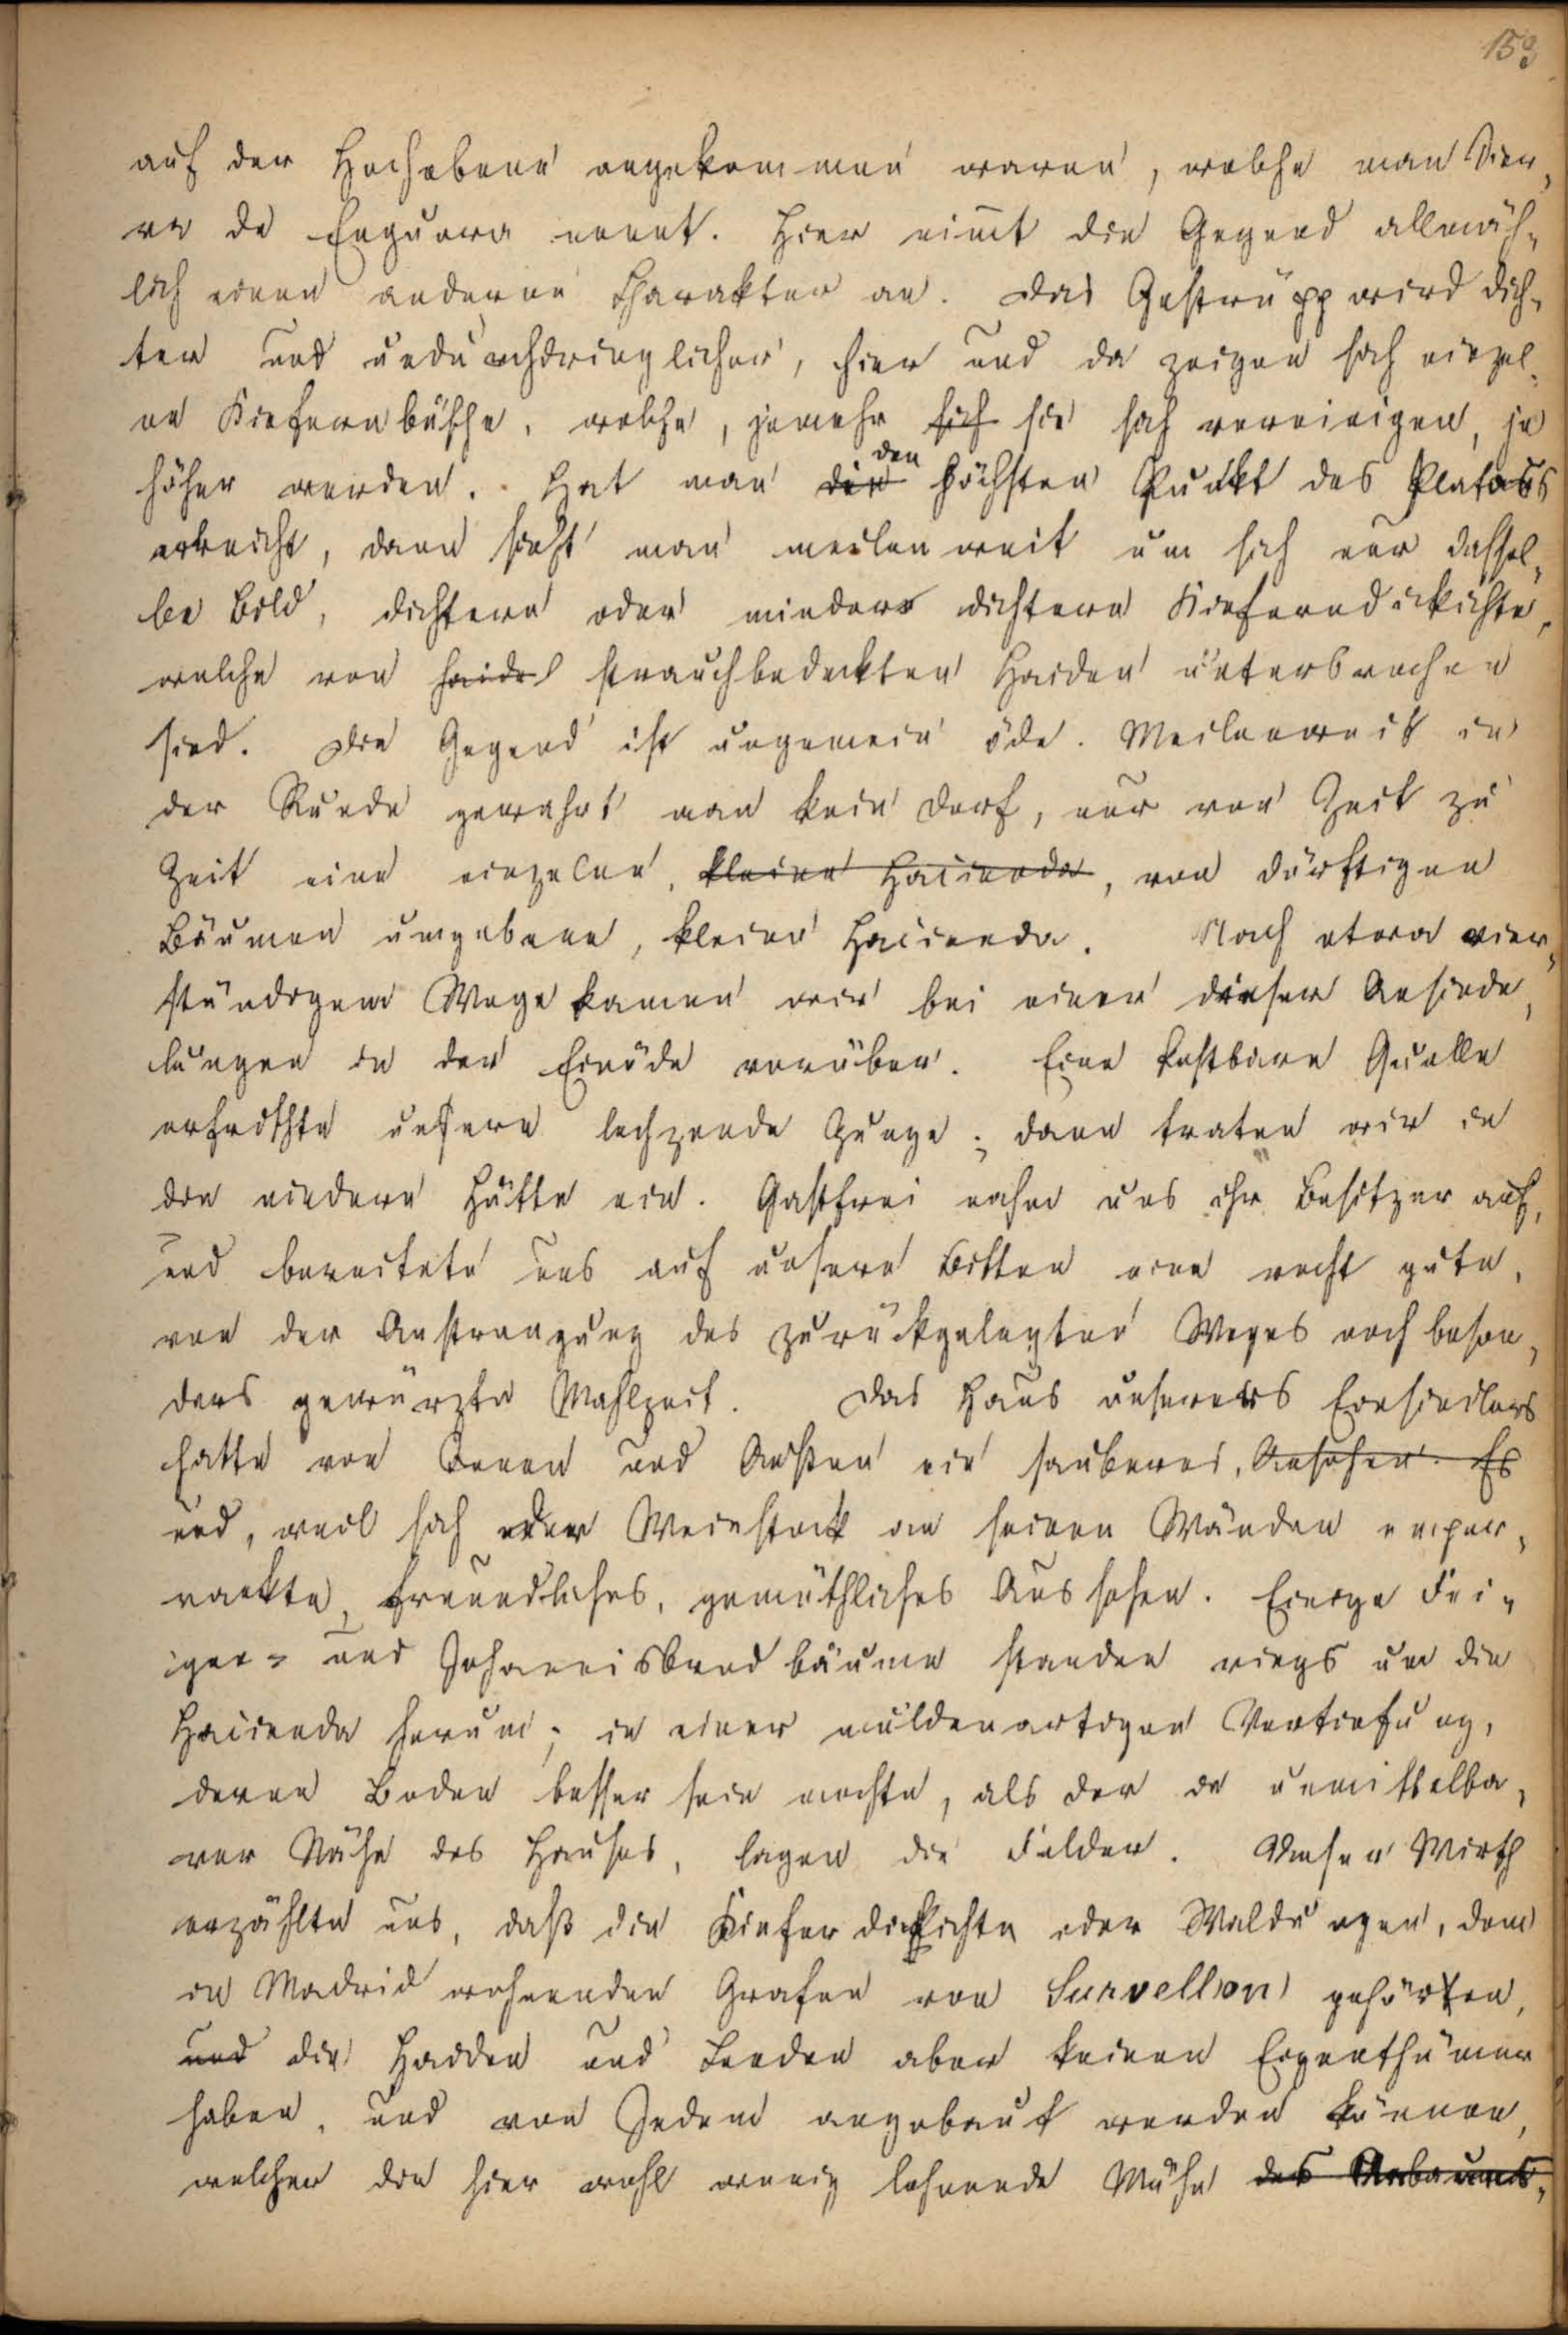 153
auf der Hochebene angekommen waren, welche man Sier-
ra de Enguera nennt. Hier nim̄t die Gegend allmäh-
lich einen anderen Charakter an. Das Gestrüpp wird dich-
ter und undurchdringlicher, hier und da zeigen sich einzel-
ne Kiefernbüsche, welche, jemehr sich sie sich vereinigen, je
den
höher werden. Hat man die höchsten Punkt des Plataus
erreicht, dann sieht man meilenweit um sich nur dassel-
be Bild, dichtere oder minder dichtere Kieferndickichte,
welche von haide strauchbedeckten Haiden unterbrochen
sind. Die Gegend ist ungemein öde. Meilenweit in
der Runde gewahrt man kein Dorf, nur von Zeit zu
Zeit eine einzelne, kleine Hacienda, von dürftigen
Bäumen umgebene, kleine Hacienda. Nach etwa vier-
stündigem Wege kamen wir bei einer dieser Ansiede-
lungen in der Einöde vorüber. Eine kostbare Quelle
erfrischte unsere lechzende Zunge; dann traten wir in
die niedere Hütte ein. Gastfrei nahm uns ihr Besitzer auf,
und bereitete uns auf unsere Bitten eine recht gute,
von der Anstrengung des zurückgelegten Weges noch beson-
ders gewürzte Mahlzeit. Das Haus unseres Einsiedlers
hatte von Innen und Außen ein sauberes, Ansehen. Es
und, weil sich der Weinstock an seinen Wänden empor-
rankte, freundliches, gemüthliches Aussehen. Einige Fei-
gen- und Johannisbrodbäume standen rings um die
Hacienda herum; in einer muldenartigen Vertiefung,
deren Boden besser sein mochte, als der in unmittelba-
rer Nähe des Hauses, lagen die Felder. Unser Wirth
erzählte uns, daß die Kieferdickichte oder Waldungen, dem
in Madrid wohnenden Grafen von Survellon gehörten,
und die Haiden und Leeden aber keinen Eigenthümer
haben, und von Jedem angebaut werden können,
welcher die hier wohl wenig lohnende Mühe des Anbaues,